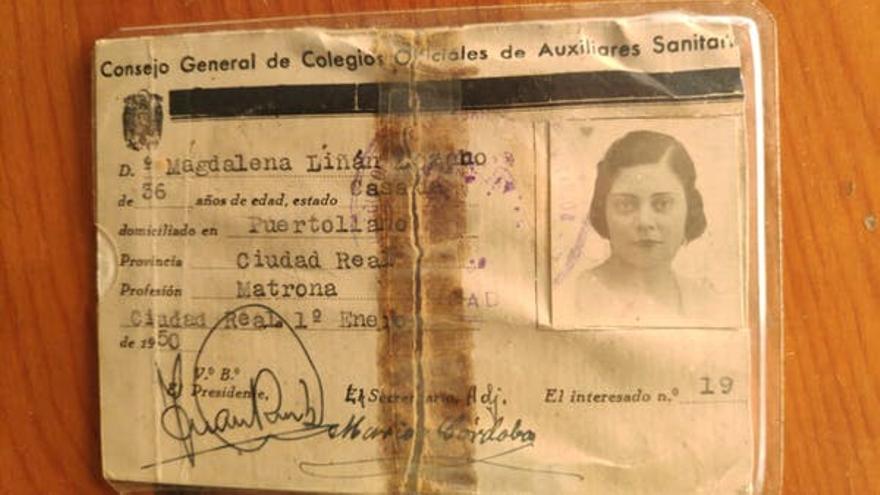 Consejo General de Colegios Oficiales de Auxiliares Sanitari
D.ª Magdalena Liñán Lozano
de 36 años de edad, estado Casada
domiciliado en Puertollano
Provincia Ciudad Real
Profesión Matrona
Ciudad Real 1º Enero
de 1950
V.º B.º
El Presidente,
El Secretario, Adj.
El interesado n.º 19
Juan Ruib
Marian Córdoba